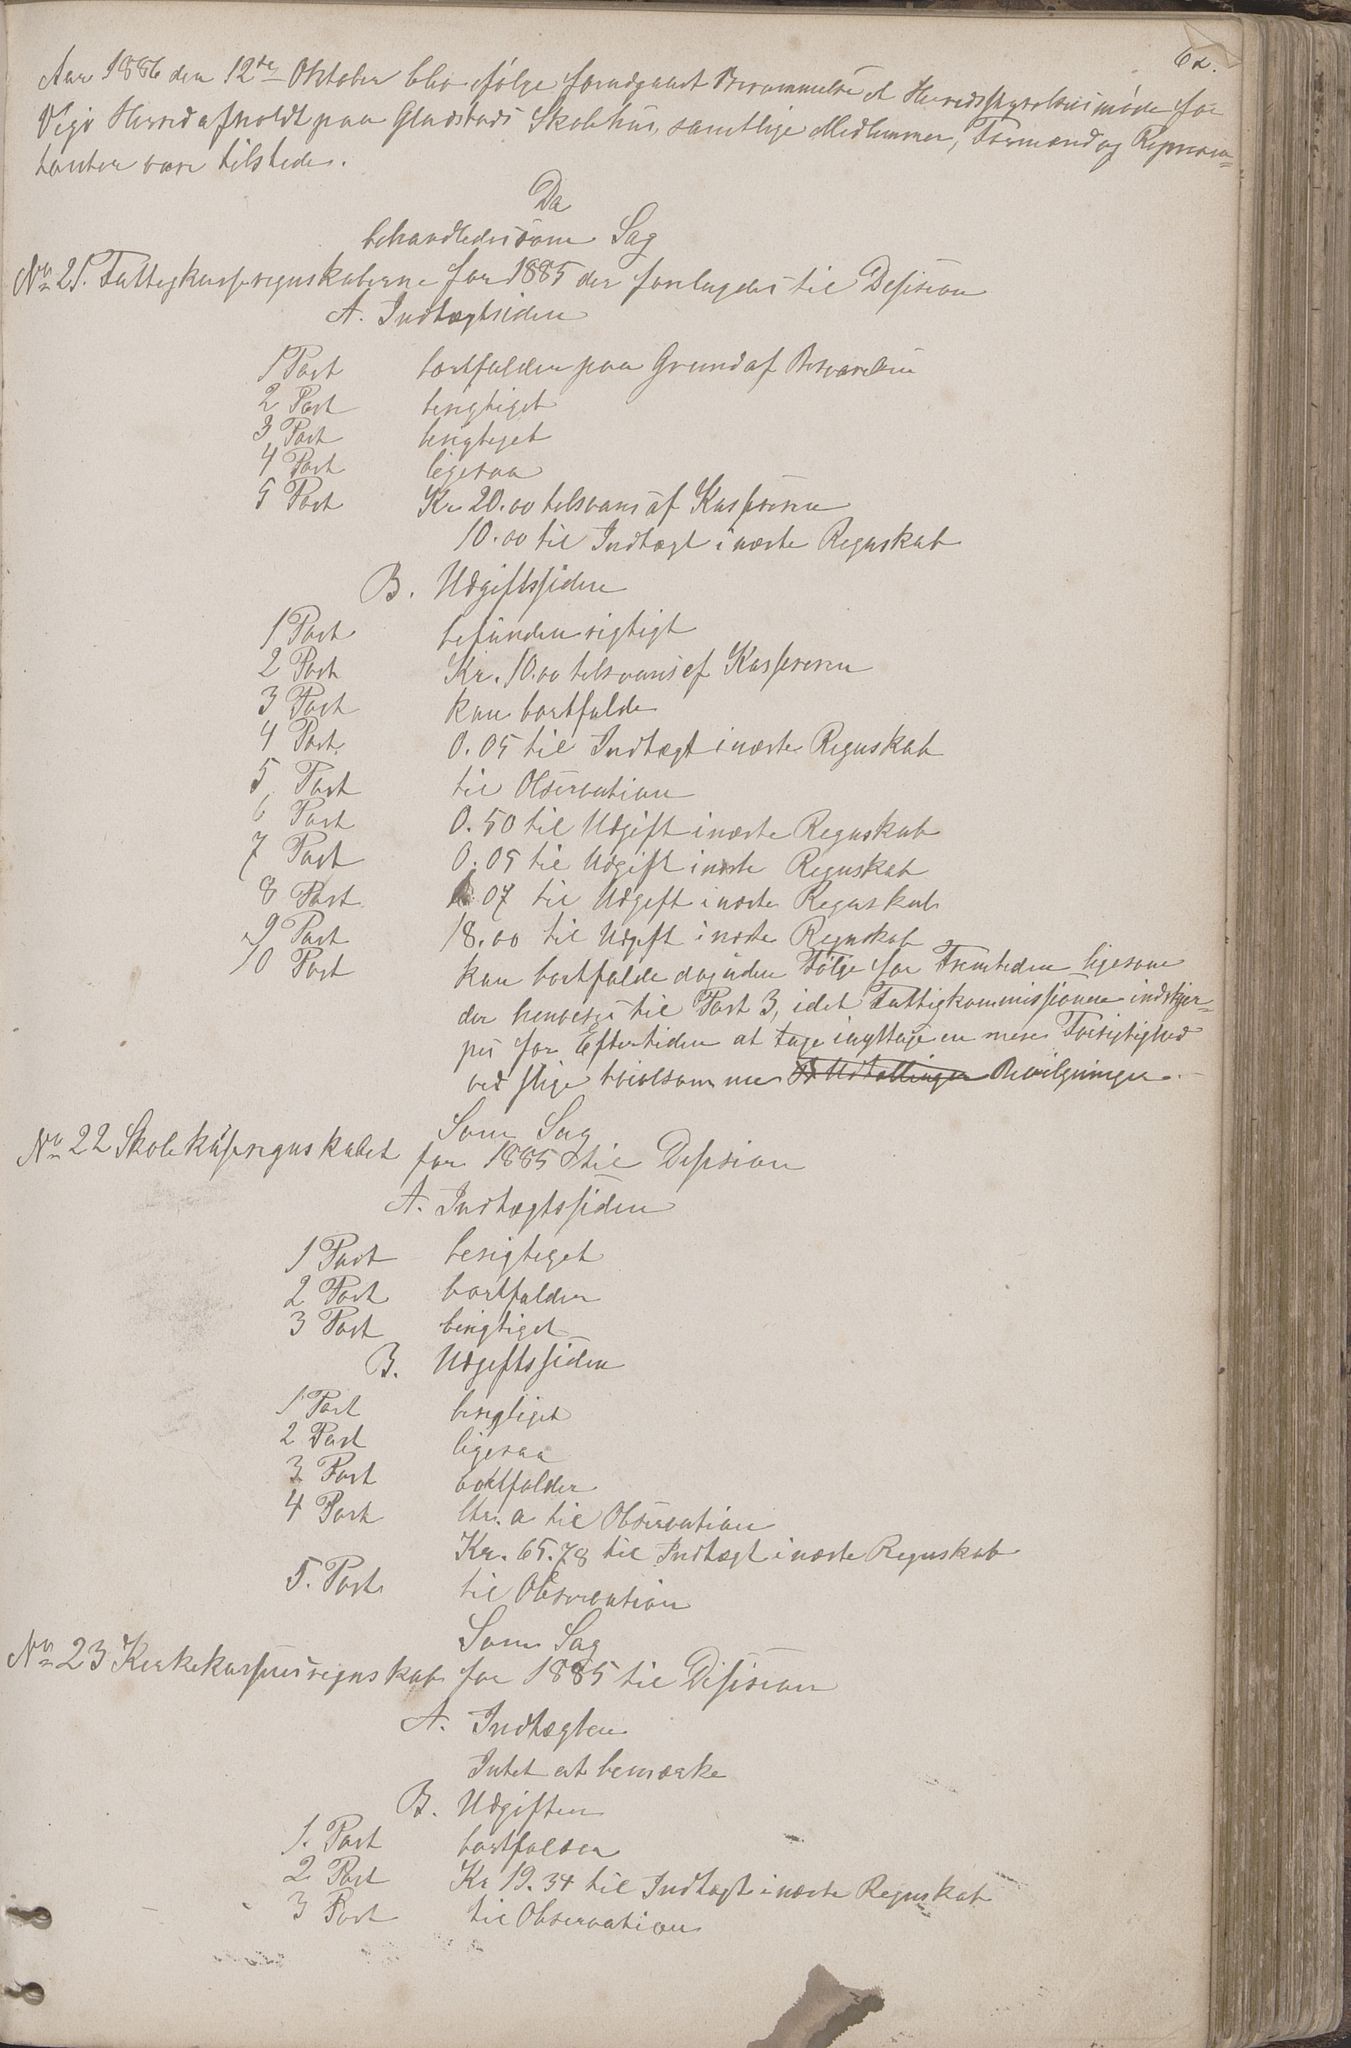 62.
Aar 1886 den 12te Oktober blev ifølge forudgaaet Berammelse et Herredsstyrelsesmøde for
Vegø Herred afholdt paa Gladstads Skolehus, samtlige Medlemmer, Formænd og Repræsen-
tanter vare tilstede.
Da
behandledes som Sag
No 21. Fattigkasseregnskaberne for 1885 der forelagdes til Desision
A. Indtægtsiden
1 Post bortfalder paa Grund af Besvarelsen
2 Post berigtiget
3 Post berigtiget
4 Post ligesaa
5 Post Kr. 20.00 tilsvares af Kassereren
10.00 til Indtægt i næste Regnskab
B. Udgiftssiden
1 Post befunden rigtigt
2 Post Kr. 10.00 tilsvares af Kassereren
3 Post kan bortfalde
4 Post 0.05 til Indtægt i næste Regnskab
5 Post til Observation
6 Post 0.50 til Udgift i næste Regnskab
7 Post 0.05 til Udgift i næste Regnskab
8 Post 07 til Udgift i næste Regnskab
9 Post 18.00 til Udgift i næste Regnskab
10 Post kan bortfalde dog uden Følge for Fremtiden ligesom
der henvises til Post 3, idet Fattigkommissionen indskjær-
pes for Eftertiden at tage iagttage en mere Forsigtighed
ved slige tvivlsomme Udtællinger Bevilgninger.
Som Sag
No 22 Skolekasseregnskabet for 1885 til Desision
A. Indtægtssiden
1 Post berigtiget
2 Post bortfalder
3 Post berigtiget
B. Udgiftssiden
1 Post berigtiget
2 Post ligesaa
3 Post bortfalder
4 Post ltr. a til Observation
Kr. 65.78 til Indtægt i næste Regnskab
5. Post til Observation
Som Sag
No 23 Kirkekassensregnskab for 1885 til Disision
A. Indtægten
Intet at bemærke
B. Udgiften
1. Post bortfalder
2 Post Kr 19.34 til Indtægt i næste Regnskab
3 Post til Observation